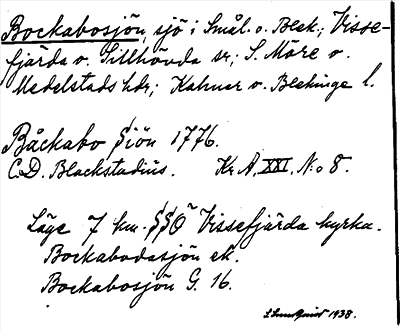 Bockabosjön, sjö i Smål. o. Blek.; Visse-
fjärda o. Sillhövda sn; S. Möre o.
Medelstads hdr; Kalmar o. Blekinge l.
Båckabo Siön 1776.
C.D. Blackstadius. Kr A, XXI, N:o 8.
Läge 7 km. SSO Vissefjärda kyrka.
Bockabodasjön ek.
Bockabosjön G. 16.
1938.